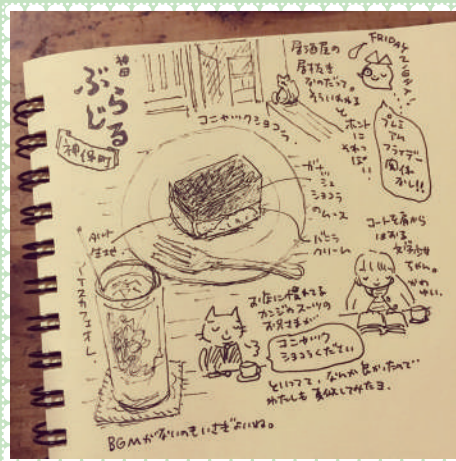 神田
ぶらじる
神保町
居酒屋の
居抜き
なのだって。
そういわれると
ホントに
それっぽい
FRIDAY
プレミ
アム
フライデー
関係
なし!!
コニャックショコラ。
ガナ
シュ
ショコラ
のムース
バニラ
クリーム
タルト
生地
アイスカフェオレ。
コートを肩から
はおる
文学少女
ちゃん。
かわ
ゆい。
お店に慣れてる
カンジのスーツの
お兄さまが
コニャック
ショコラください
といってて、なんか良かったので
わたしも真似してみたヨ。
BGMがないのもいさぎよいね。